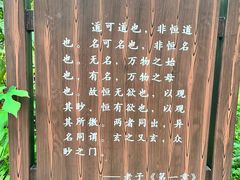 道可道也，非恒道
也。名可名也，非恒名
也。无名，万物之始
也，有名，万物之母
也。故恒无欲也，以观
其眇，恒有欲也，以观
其所徼。两者同出，异
名同谓。玄之又玄，众
眇之门
——老子《第一章》